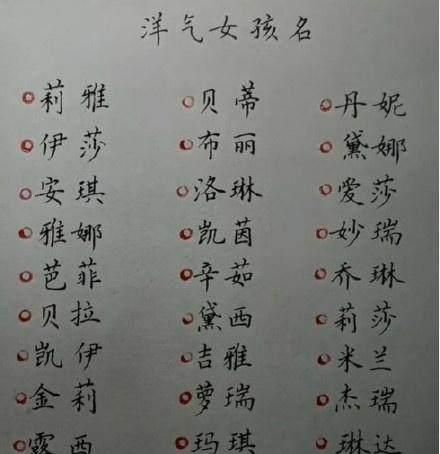 洋气女孩名
莉雅 贝蒂 丹妮
伊莎 布丽 黛娜
安琪 洛琳 爱莎
雅娜 凯茵 妙瑞
芭菲 辛茹 乔琳
贝拉 黛西 莉莎
凯伊 吉雅 米兰
金莉 萝瑞 杰瑞
露西 玛琪 琳达